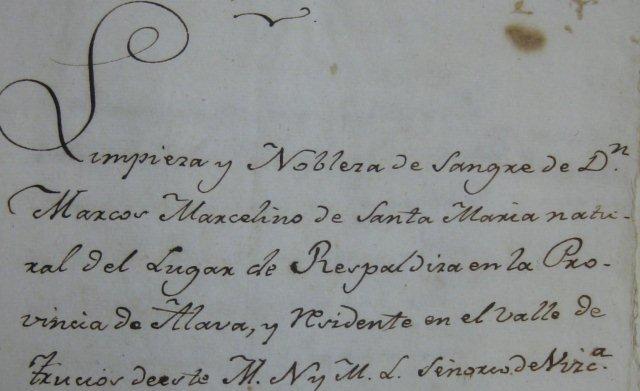 Limpieza y Nobleza de Sangre de D.ⁿ
Marcos Marcelino de Santa Maria natu-
ral del Lugar de Respaldiza en la Pro-
vincia de Alava, y residente en el valle de
trucios de este M. N y M. L. Señorio de Vizc.ª